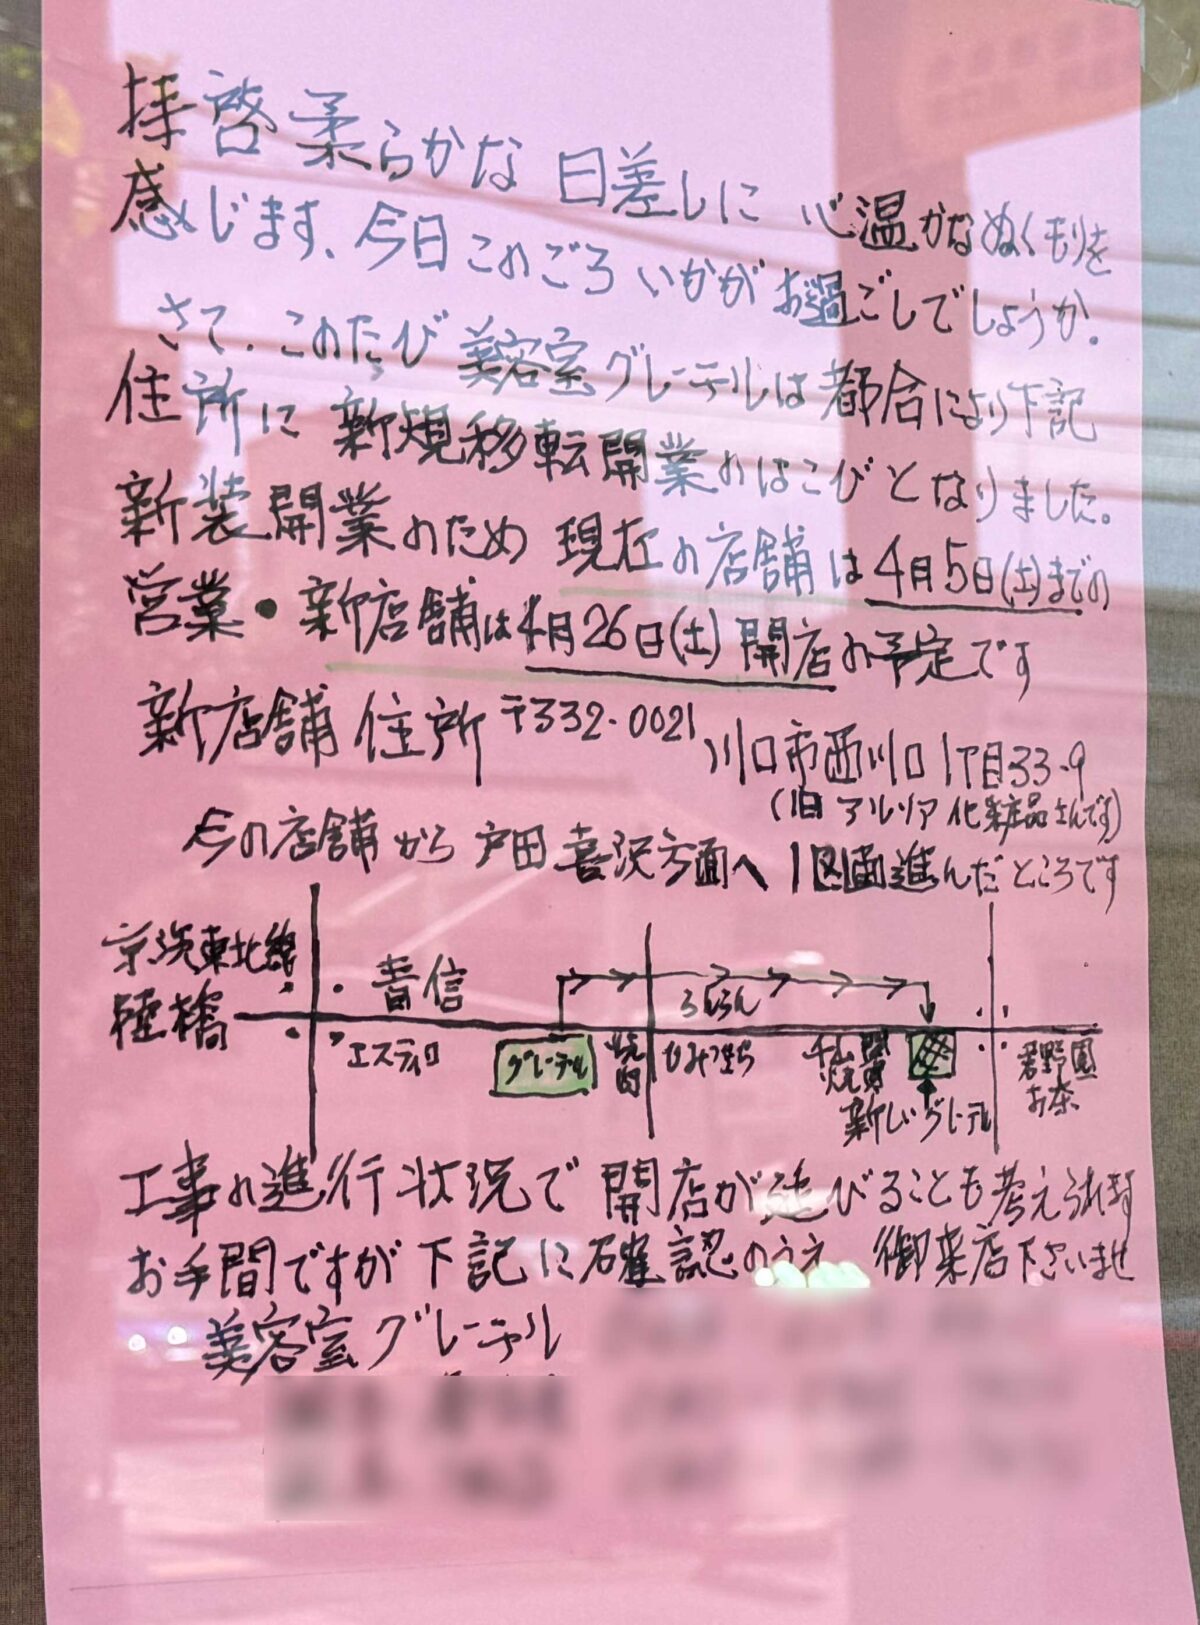 拝啓 柔らかな 日差しに 心温かなぬくもりを
感じます、今日このごろ いかがお過ごしでしょうか。
さて、このたび 美容室グレーテルは都合により下記
住所に 新規移転開業のはこびとなりました。
新装開業のため 現在の店舗は4月5日(土)までの
営業・新店舗は4月26日(土)開店の予定です
新店舗 住所 〒332-0021 川口市西川口1丁目33-9
(旧 アルソア化粧品さんです)
今の店舗から 戸田喜沢方面へ 1区画進んだところです
京浜東北線
陸橋
青信
るんるん
エスティロ
グレーテル
焼肉
ひみつきち
新しいグレーテル
君野園
お茶
工事の進行状況で 開店が延びることも考えられます
お手間ですが 下記に確認のうえ 御来店下さいませ
美容室 グレーテル